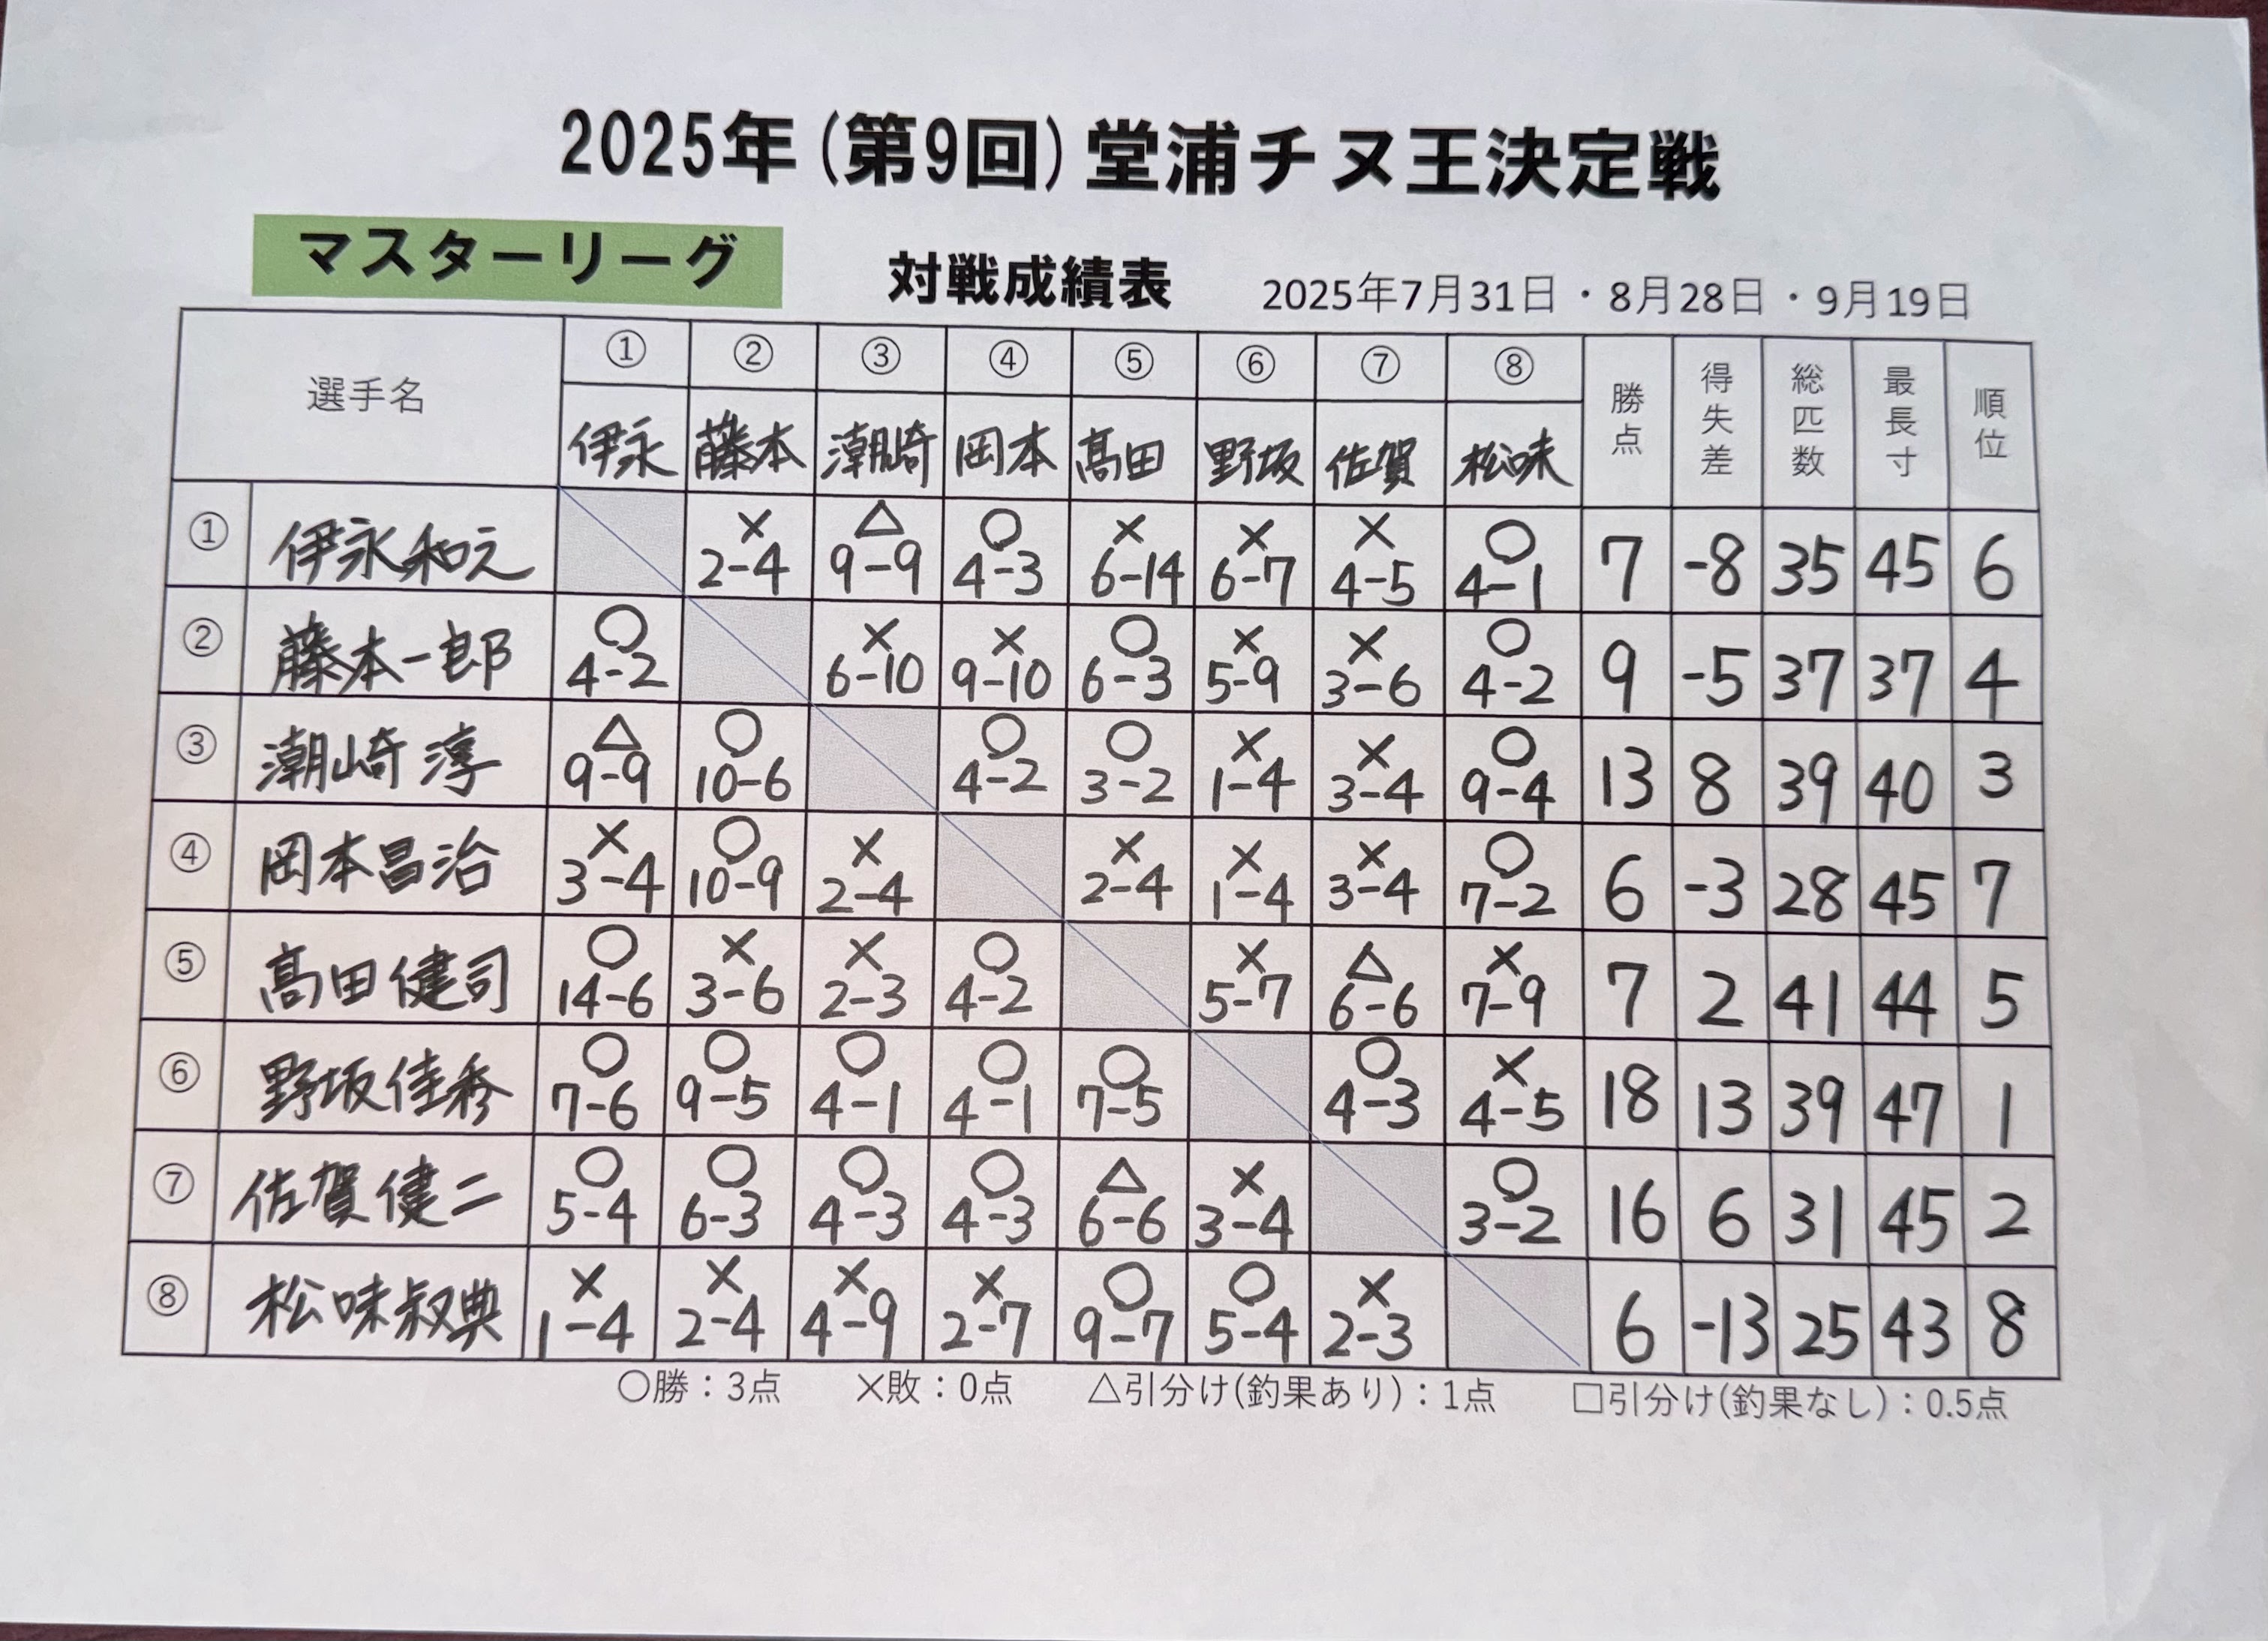 2025年(第9回)堂浦チヌ王決定戦
マスターリーグ 対戦成績表 2025年7月31日・8月28日・9月19日
選手名 ① ② ③ ④ ⑤ ⑥ ⑦ ⑧ 勝点 得失差 総匹数 最長寸 順位
伊永 藤本 潮崎 岡本 髙田 野坂 佐賀 松味
① 伊永和之 × 2-4 △ 9-9 ○ 4-3 × 6-14 × 6-7 × 4-5 ○ 4-1 7 -8 35 45 6
② 藤本一郎 ○ 4-2 × 6-10 × 9-10 ○ 6-3 × 5-9 × 3-6 ○ 4-2 9 -5 37 37 4
③ 潮崎淳 △ 9-9 ○ 10-6 ○ 4-2 ○ 3-2 × 1-4 × 3-4 ○ 9-4 13 8 39 40 3
④ 岡本昌治 × 3-4 ○ 10-9 × 2-4 × 2-4 × 1-4 × 3-4 ○ 7-2 6 -3 28 45 7
⑤ 髙田健司 ○ 14-6 × 3-6 × 2-3 ○ 4-2 × 5-7 △ 6-6 × 7-9 7 2 41 44 5
⑥ 野坂佳秀 ○ 7-6 ○ 9-5 ○ 4-1 ○ 4-1 ○ 7-5 ○ 4-3 × 4-5 18 13 39 47 1
⑦ 佐賀健二 ○ 5-4 ○ 6-3 ○ 4-3 ○ 4-3 △ 6-6 × 3-4 ○ 3-2 16 6 31 45 2
⑧ 松味叔典 × 1-4 × 2-4 × 4-9 × 2-7 ○ 9-7 ○ 5-4 × 2-3 6 -13 25 43 8
○勝：3点 ×敗：0点 △引分け(釣果あり)：1点 □引分け(釣果なし)：0.5点